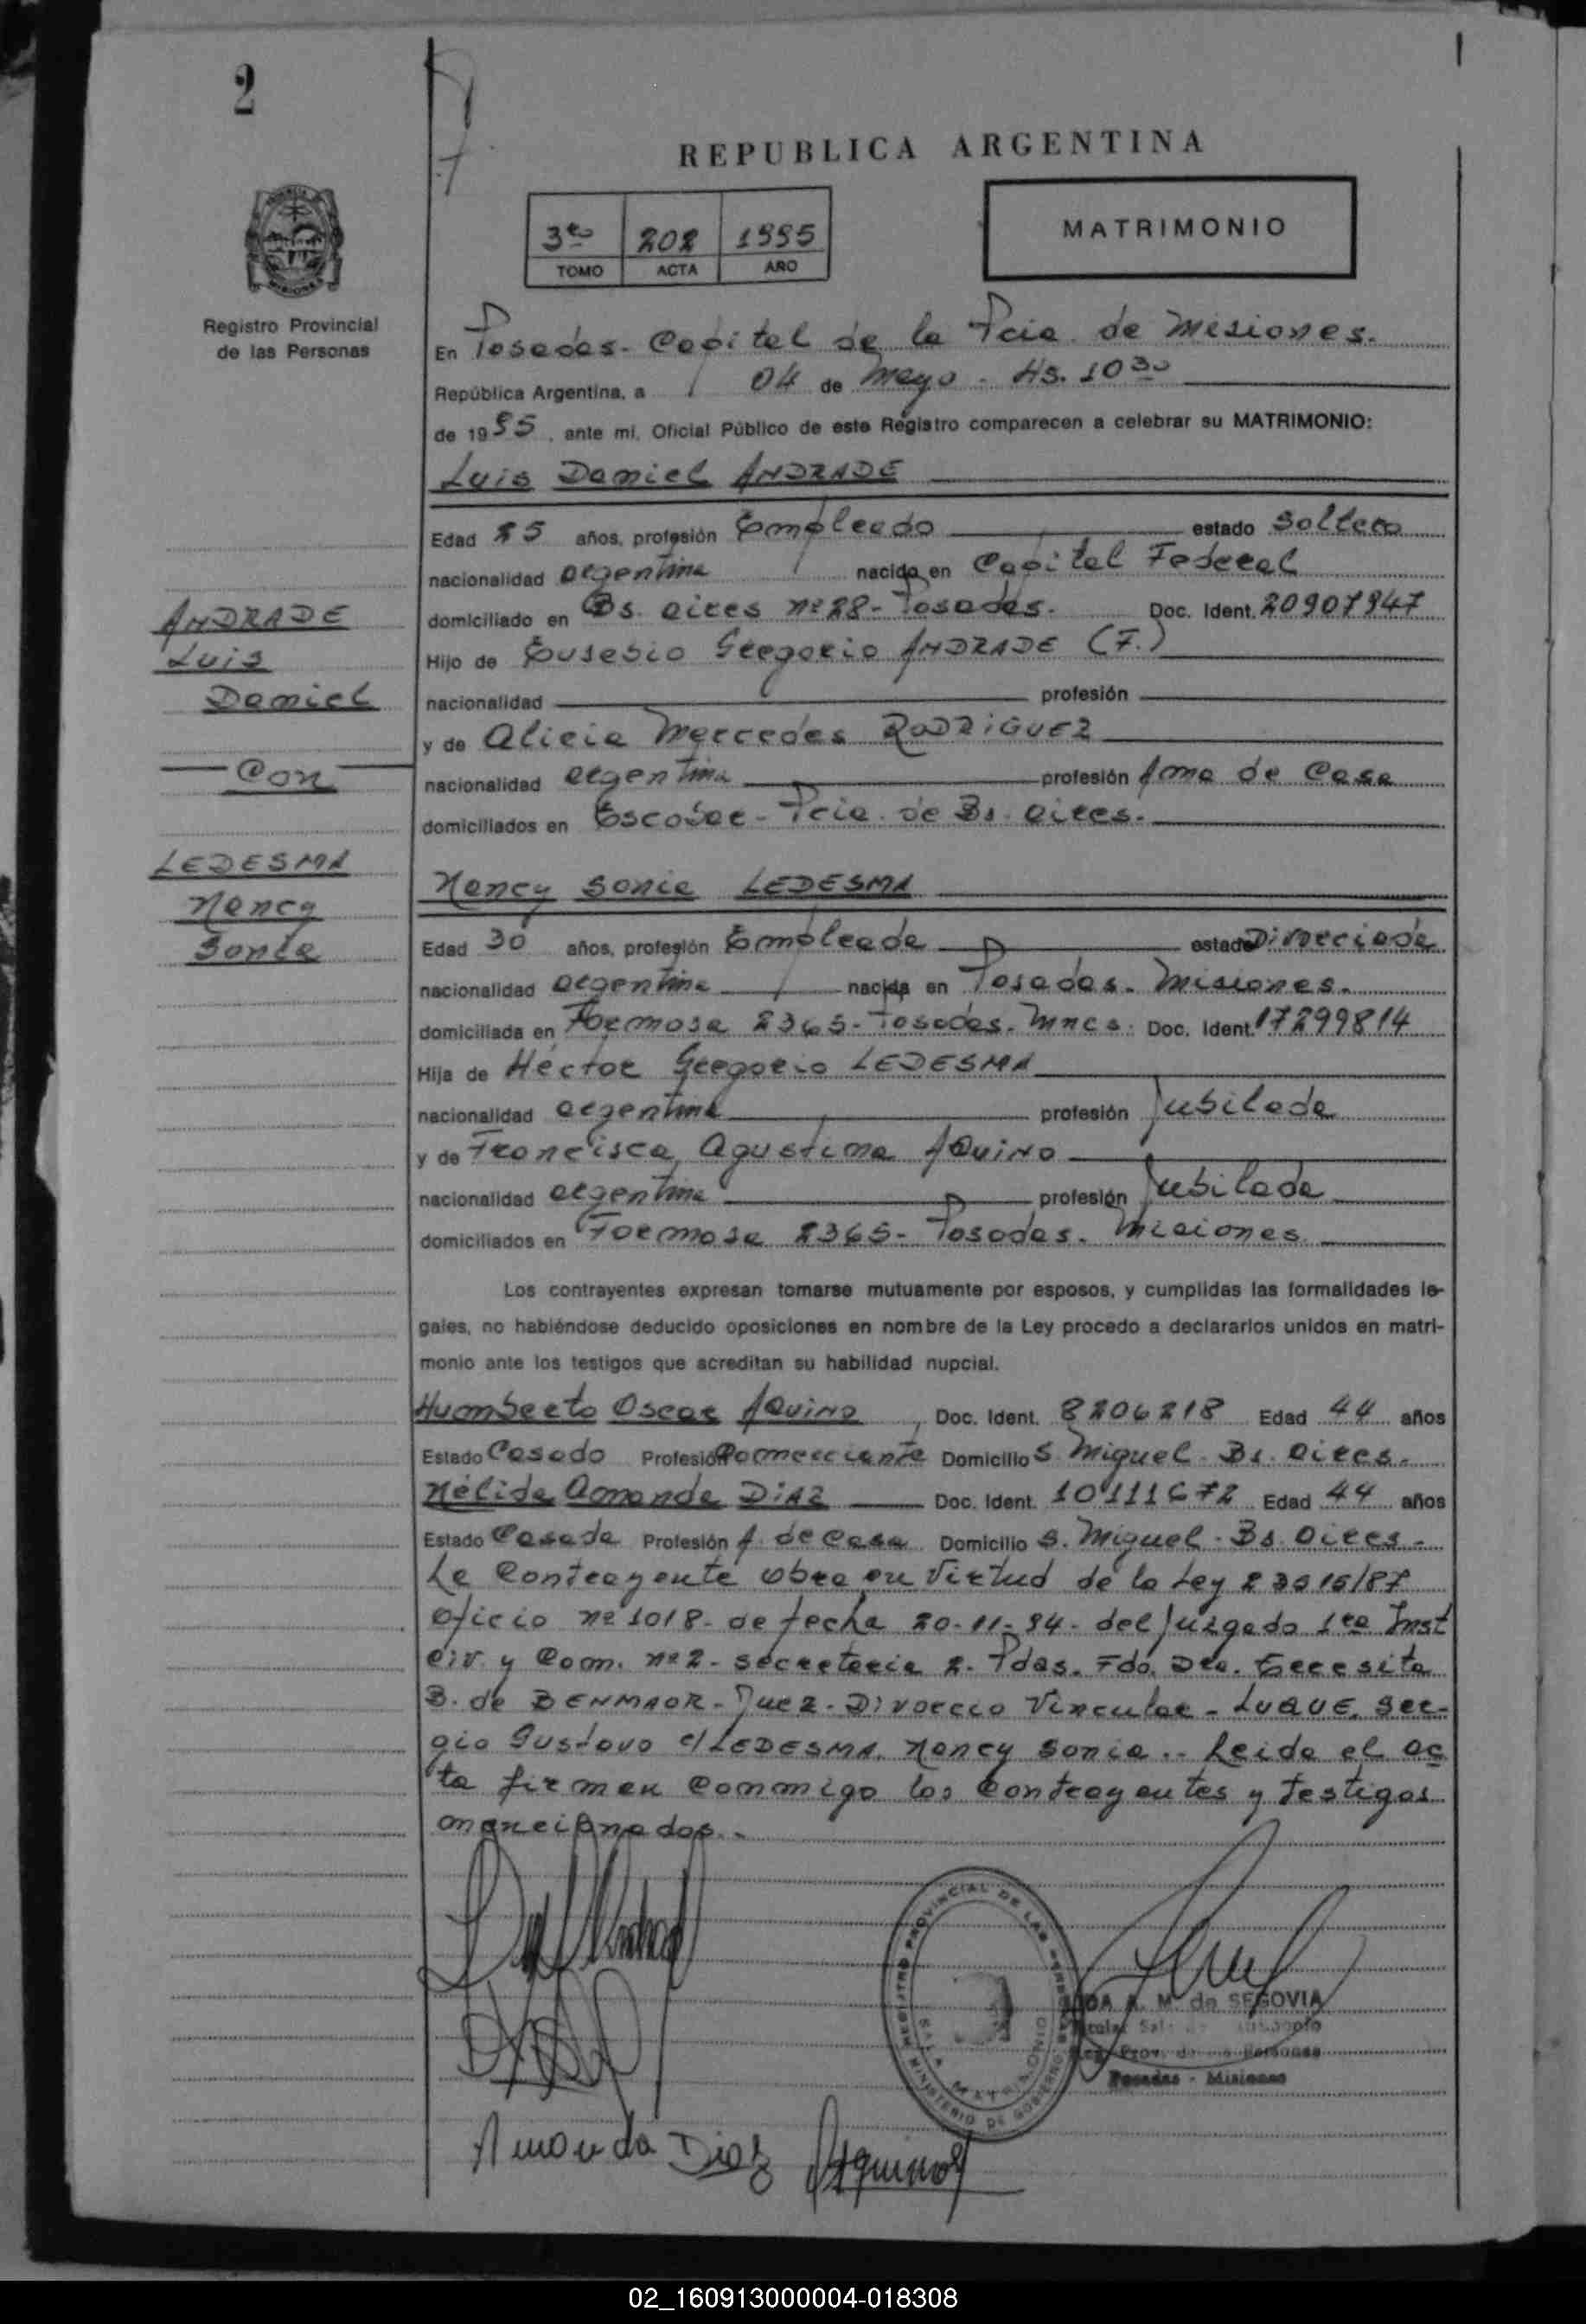 2
REPUBLICA ARGENTINA
3ro 202 1995
TOMO ACTA AÑO
MATRIMONIO
Registro Provincial
de las Personas
En Posadas - Capital de la Pcia. de Misiones.
República Argentina, a 04 de Mayo - Hs. 10 30
de 1995, ante mí, Oficial Público de este Registro comparecen a celebrar su MATRIMONIO:
Luis Daniel ANDRADE
Edad 25 años, profesión Empleado estado Soltero
nacionalidad argentina nacido en Capital Federal
domiciliado en Bs. aires nº 28 - Posadas. Doc. Ident. 20907947
Hijo de Eusebio Gregorio ANDRADE (F.)
nacionalidad profesión
y de Alicia Mercedes RODRIGUEZ
nacionalidad argentina profesión Ama de Casa
domiciliados en Escobar - Pcia. de Bs. aires.
ANDRADE
Luis
Daniel
Con
LEDESMA
Nancy
Sonia
Nancy Sonia LEDESMA
Edad 30 años, profesión Empleada estado Divorciada
nacionalidad argentina nacida en Posadas. Misiones.
domiciliada en Formosa 2365 - Posadas. Mnes. Doc. Ident. 17299814
Hija de Héctor Gregorio LEDESMA
nacionalidad argentina profesión Jubilado
y de Francisca Agustina AQUINO
nacionalidad argentina profesión Jubilada
domiciliados en Formosa 2365 - Posadas. Misiones.
Los contrayentes expresan tomarse mutuamente por esposos, y cumplidas las formalidades le-
gales, no habiéndose deducido oposiciones en nombre de la Ley procedo a declararlos unidos en matri-
monio ante los testigos que acreditan su habilidad nupcial.
Humberto Oscar AQUINO, Doc. Ident. 8206218 Edad 44 años
Estado Casado Profesión Comerciante Domicilio S. Miguel - Bs. Aires.
Nélida Amanda DIAZ Doc. Ident. 10111672 Edad 44 años
Estado Casada Profesión A. de Casa Domicilio S. Miguel - Bs. Aires.
La Contrayente obra en Virtud de la Ley 23515/87
Oficio nº 1018 - de fecha 20-11-94 - del Juzgado 1ra Inst
Civ. y Com. nº 2 - secretaria 2. Pdas. Fdo. Dra. Teresita
B. de BENMAOR - Juez - Divorcio Vincular - LUQUE, Ser-
gio Gustavo c/ LEDESMA, Nancy Sonia .. Leida el ac
ta firman conmigo los contrayentes y testigos
mencionados.
REGISTRO PROVINCIAL DE LAS PERSONAS
SALA MATRIMONIO
MINISTERIO DE GOBIERNO
A. M. de SEGOVIA
Reg. Prov. de las Personas
Posadas - Misiones
Amanda Diaz
02_160913000004-018308